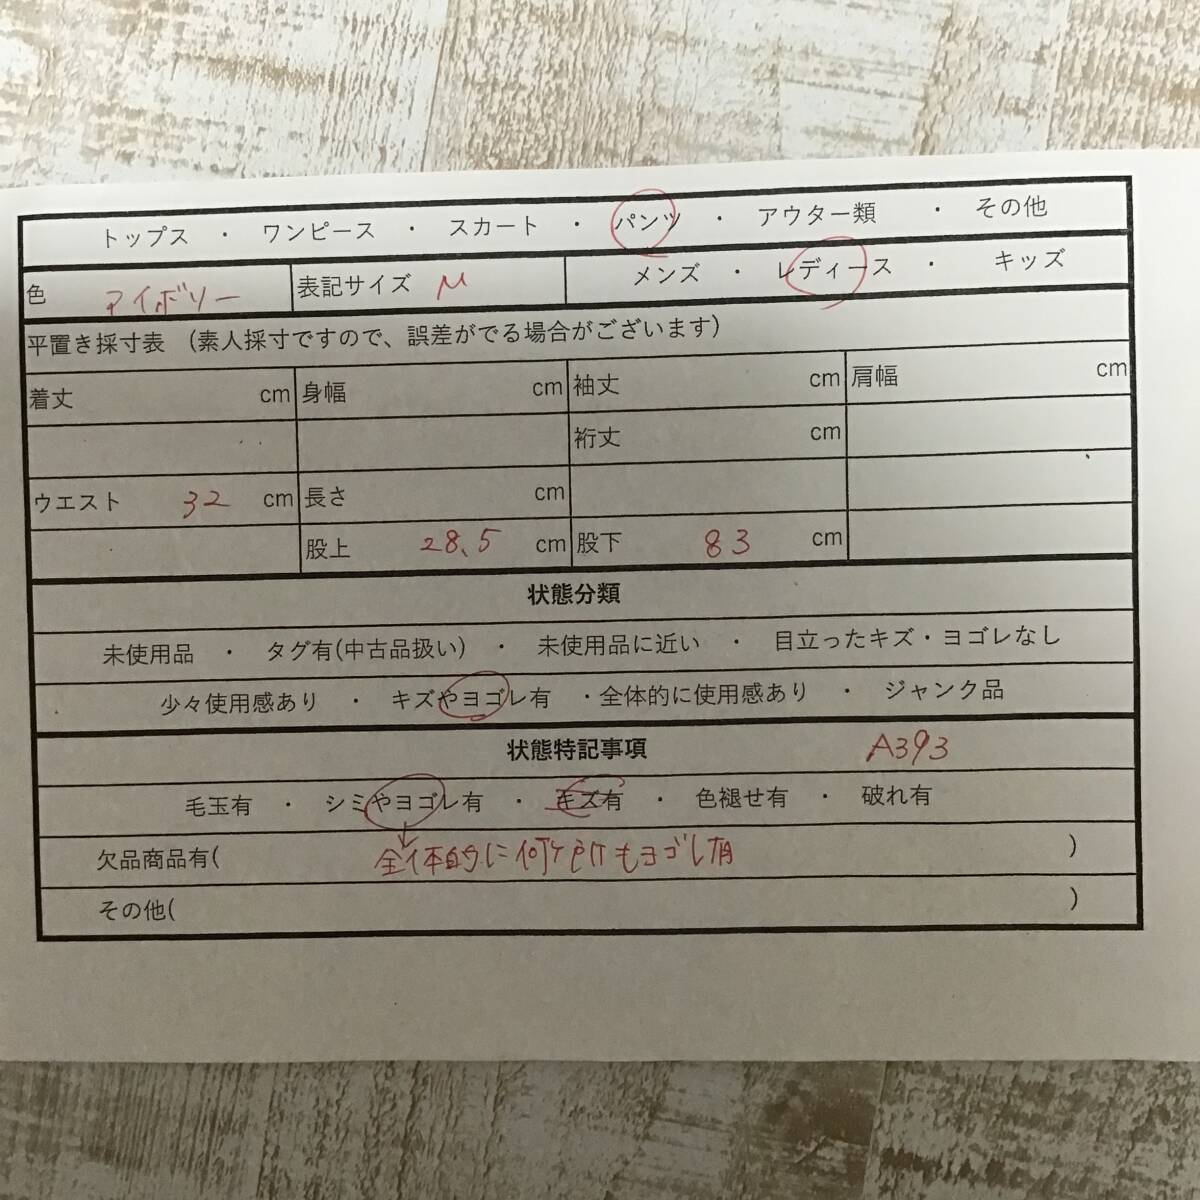 トップス ・ ワンピース ・ スカート ・ パンツ ・ アウター類 ・ その他
色 アイボリー 表記サイズ M メンズ ・ レディース ・ キッズ
平置き採寸表 (素人採寸ですので、誤差がでる場合がございます)
着丈 cm 身幅 cm 袖丈 cm 肩幅 cm
裄丈 cm
ウエスト 32 cm 長さ cm
股上 28.5 cm 股下 83 cm
状態分類
未使用品 ・ タグ有(中古品扱い) ・ 未使用品に近い ・ 目立ったキズ・ヨゴレなし
少々使用感あり ・ キズやヨゴレ有 ・全体的に使用感あり ・ ジャンク品
状態特記事項 A393
毛玉有 ・ シミやヨゴレ有 ・ キズ有 ・ 色褪せ有 ・ 破れ有
欠品商品有( 全体的に何ケ所もヨゴレ有 )
その他( )